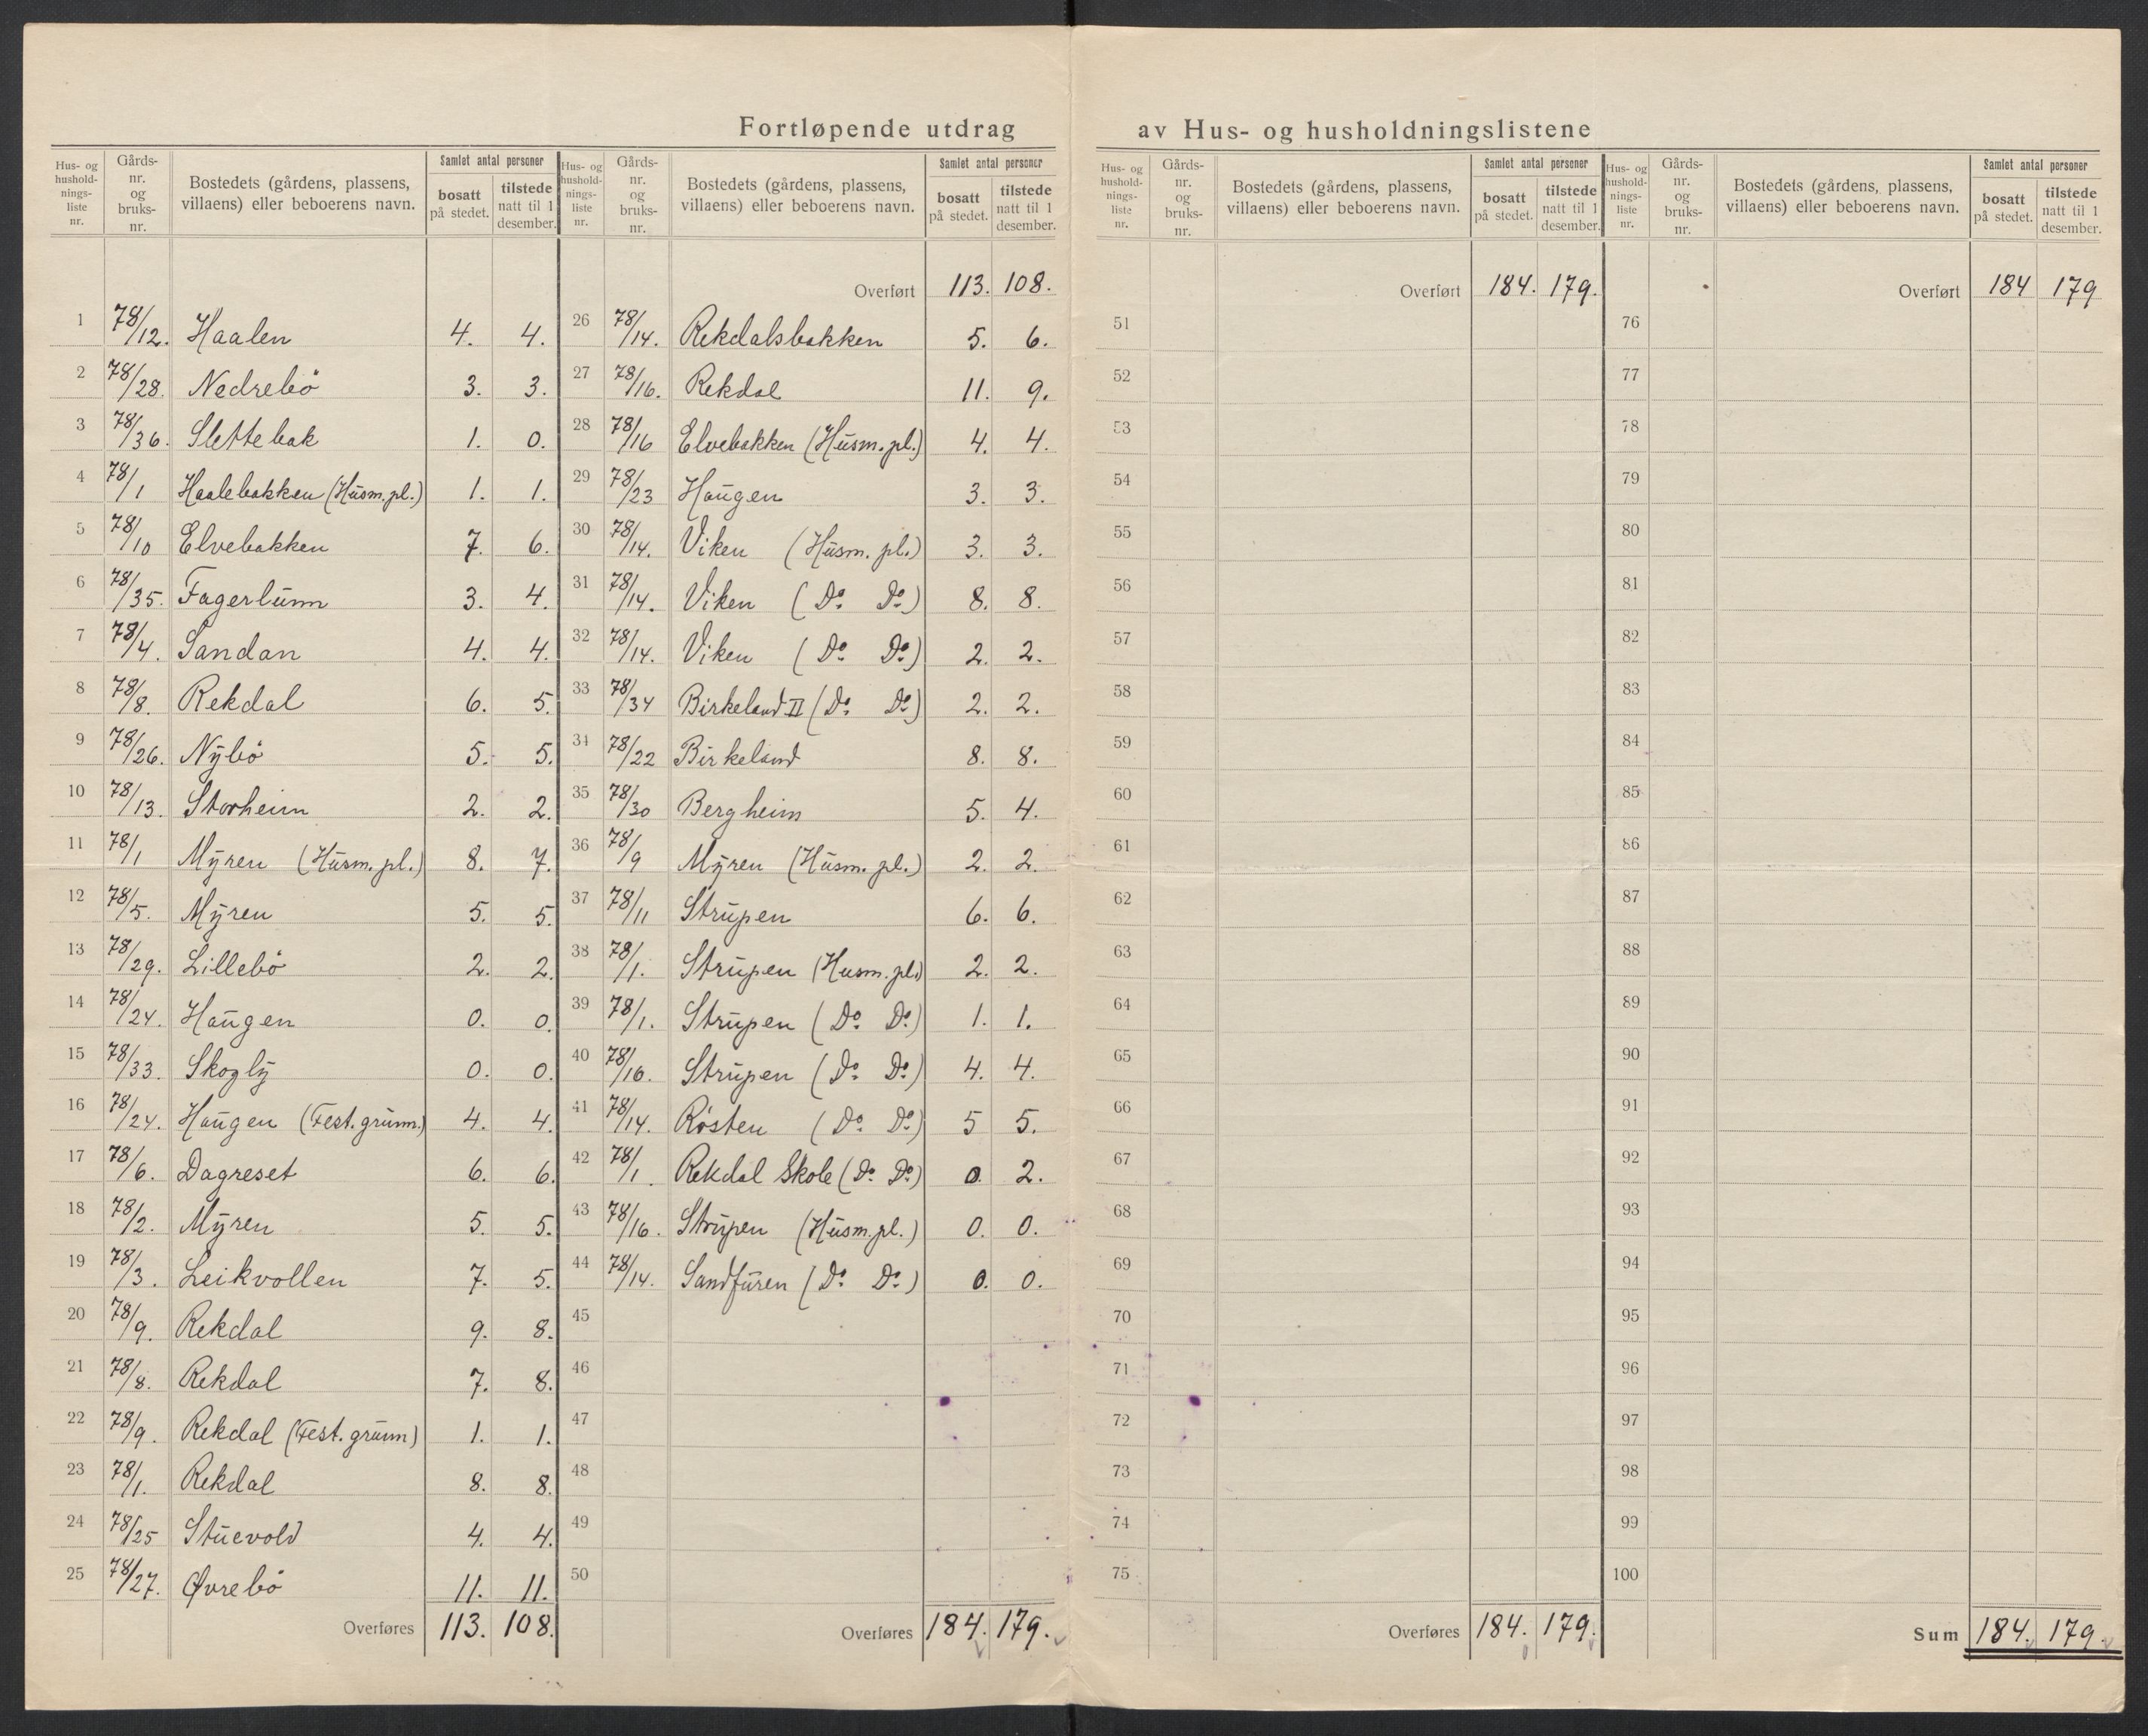 Fortløpende utdrag av Hus- og husholdningslistene
Hus- og husholdnings-liste nr. | Gårds-nr. og bruks-nr. | Bostedets (gårdens, plassens, villaens) eller beboerens navn. | Samlet antal personer bosatt på stedet. | tilstede natt til 1 desember.
1 78/12. Haalen 4. 4.
2 78/28. Nedrebö 3. 3.
3 78/36. Slettebak 1. 0.
4 78/1 Haalebakken (Husm. pl.) 1. 1.
5 78/10 Elvebakken 7. 6.
6 78/35. Fagerlunn 3. 4.
7 78/4. Sandan 4. 4.
8 78/8. Rekdal 6. 5.
9 78/26. Nybö 5. 5.
10 78/13. Storheim 2. 2.
11 78/1 Myren (Husm. pl.) 8. 7.
12 78/5. Myren 5. 5.
13 78/29. Lillebö 2. 2.
14 78/24. Haugen 0. 0.
15 78/33. Skogly 0. 0.
16 78/24. Haugen (Fest. grunn.) 4. 4.
17 78/6. Dagreset 6. 6.
18 78/2. Myren 5. 5.
19 78/3. Leikvollen 7. 5.
20 78/9. Rekdal 9. 8.
21 78/8. Rekdal 7. 8.
22 78/9. Rekdal (Fest. grunn) 1. 1.
23 78/1. Rekdal 8. 8.
24 78/25 Stuevold 4. 4.
25 78/27. Øvrebö 11. 11.
Overføres 113. 108.
Hus- og husholdnings-liste nr. | Gårds-nr. og bruks-nr. | Bostedets (gårdens, plassens, villaens) eller beboerens navn. | Samlet antal personer bosatt på stedet. | tilstede natt til 1 desember.
Overført 113. 108.
26 78/14. Rekdalsbakken 5. 6.
27 78/16. Rekdal 11. 9.
28 78/16 Elvebakken (Husm. pl.) 4. 4.
29 78/23 Haugen 3. 3.
30 78/14. Viken (Husm. pl.) 3. 3.
31 78/14. Viken (Do. Do.) 8. 8.
32 78/14. Viken (Do. Do.) 2. 2.
33 78/34 Birkeland II (Do. Do.) 2. 2.
34 78/22 Birkeland 8. 8.
35 78/30 Bergheim 5. 4.
36 78/9 Myren (Husm. pl.) 2. 2.
37 78/11 Strupen 6. 6.
38 78/1. Strupen (Husm. pl.) 2. 2.
39 78/1. Strupen (Do. Do.) 1. 1.
40 78/16. Strupen (Do. Do.) 4. 4.
41 78/14. Rösten (Do. Do.) 5 5.
42 78/1. Rekdal Skole (Do. Do.) 0. 2.
43 78/16. Strupen (Husm. pl.) 0. 0.
44 78/14. Sandfuren (Do. Do.) 0. 0.
45
46
47
48
49
50
Overføres 184. 179.
Hus- og husholdnings-liste nr. | Gårds-nr. og bruks-nr. | Bostedets (gårdens, plassens, villaens) eller beboerens navn. | Samlet antal personer bosatt på stedet. | tilstede natt til 1 desember.
Overført 184. 179.
51
52
53
54
55
56
57
58
59
60
61
62
63
64
65
66
67
68
69
70
71
72
73
74
75
Overføres 184. 179.
Hus- og husholdnings-liste nr. | Gårds-nr. og bruks-nr. | Bostedets (gårdens, plassens, villaens) eller beboerens navn. | Samlet antal personer bosatt på stedet. | tilstede natt til 1 desember.
Overført 184 179
76
77
78
79
80
81
82
83
84
85
86
87
88
89
90
91
92
93
94
95
96
97
98
99
100
Sum 184. 179.